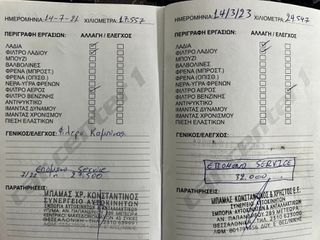 ΗΜΕΡΟΜΗΝΙΑ 14-7-21 ΧΙΛΙΟΜΕΤΡΑ 19.557
ΠΕΡΙΓΡΑΦΗ ΕΡΓΑΣΙΩΝ: ΑΛΛΑΓΗ / ΕΛΕΓΧΟΣ
ΛΑΔΙΑ
ΦΙΛΤΡΟ ΛΑΔΙΟΥ
ΜΠΟΥΖΙ
ΒΑΛΒΟΛΙΝΕΣ
ΦΡΕΝΑ (ΜΠΡΟΣΤ.)
ΦΡΕΝΑ (ΟΠΙΣΘ.)
ΝΕΡΑ-ΥΓΡΑ ΦΡΕΝΩΝ
ΦΙΛΤΡΟ ΑΕΡΟΣ
ΦΙΛΤΡΟ ΒΕΝΖΙΝΗΣ
ΑΝΤΙΨΥΚΤΙΚΟ
ΙΜΑΝΤΑΣ ΔΥΝΑΜΟΥ
ΙΜΑΝΤΑΣ ΧΡΟΝΙΣΜΟΥ
ΠΙΕΣΗ ΕΛΑΣΤΙΚΩΝ
ΓΕΝΙΚΟΣ/ΕΛΕΓΧΟΣ: Φίλτρο Καμπίνας
Επόμενο Service
ΠΑΡΑΤΗΡΗΣΕΙΣ:
ΜΠΑΜΑΣ ΧΡ. ΚΩΝΣΤΑΝΤΙΝΟΣ
ΣΥΝΕΡΓΕΙΟ ΑΥΤΟΚΙΝΗΤΩΝ
ΗΜΕΡΟΜΗΝΙΑ 14/3/23 ΧΙΛΙΟΜΕΤΡΑ 24547
ΠΕΡΙΓΡΑΦΗ ΕΡΓΑΣΙΩΝ: ΑΛΛΑΓΗ / ΕΛΕΓΧΟΣ
ΛΑΔΙΑ
ΦΙΛΤΡΟ ΛΑΔΙΟΥ
ΜΠΟΥΖΙ
ΒΑΛΒΟΛΙΝΕΣ
ΦΡΕΝΑ (ΜΠΡΟΣΤ.)
ΦΡΕΝΑ (ΟΠΙΣΘ.)
ΝΕΡΑ-ΥΓΡΑ ΦΡΕΝΩΝ
ΦΙΛΤΡΟ ΑΕΡΟΣ
ΦΙΛΤΡΟ ΒΕΝΖΙΝΗΣ
ΑΝΤΙΨΥΚΤΙΚΟ
ΙΜΑΝΤΑΣ ΔΥΝΑΜΟΥ
ΙΜΑΝΤΑΣ ΧΡΟΝΙΣΜΟΥ
ΠΙΕΣΗ ΕΛΑΣΤΙΚΩΝ
ΓΕΝΙΚΟΣ/ΕΛΕΓΧΟΣ:
ΕΠΟΜΕΝΟ SERVICE
ΠΑΡΑΤΗΡΗΣΕΙΣ:
ΜΠΑΜΑΣ ΚΩΝΣΤΑΝΤΙΝΟΣ & ΧΡΗΣΤΟΣ Ε.Ε.
ΣΥΝΕΡΓΕΙΟ ΑΥΤΟΚΙΝΗΤΩΝ
ΕΜΠΟΡΙΑ ΑΥΤΟΚΙΝΗΤΩΝ & ΑΝΤΑΛΛΑΚΤΙΚΩΝ